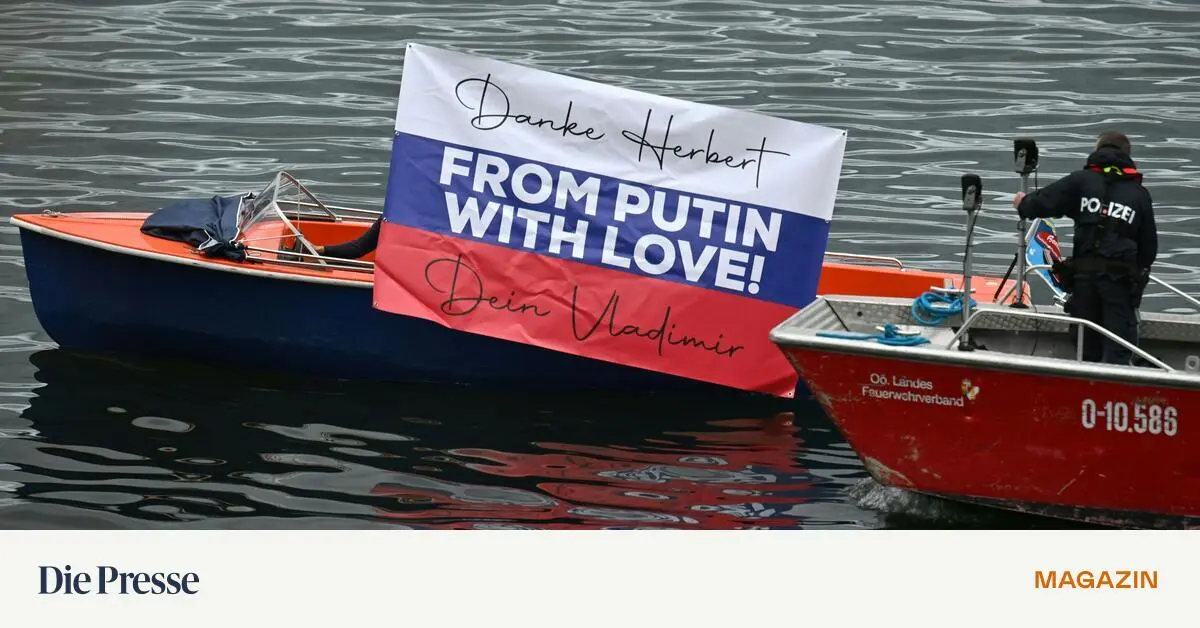 Danke Herbert
FROM PUTIN
WITH LOVE!
Dein Vladimir
POLIZEI
Oö. Landes
Feuerwehrverband
O-10.586
Die Presse
MAGAZIN